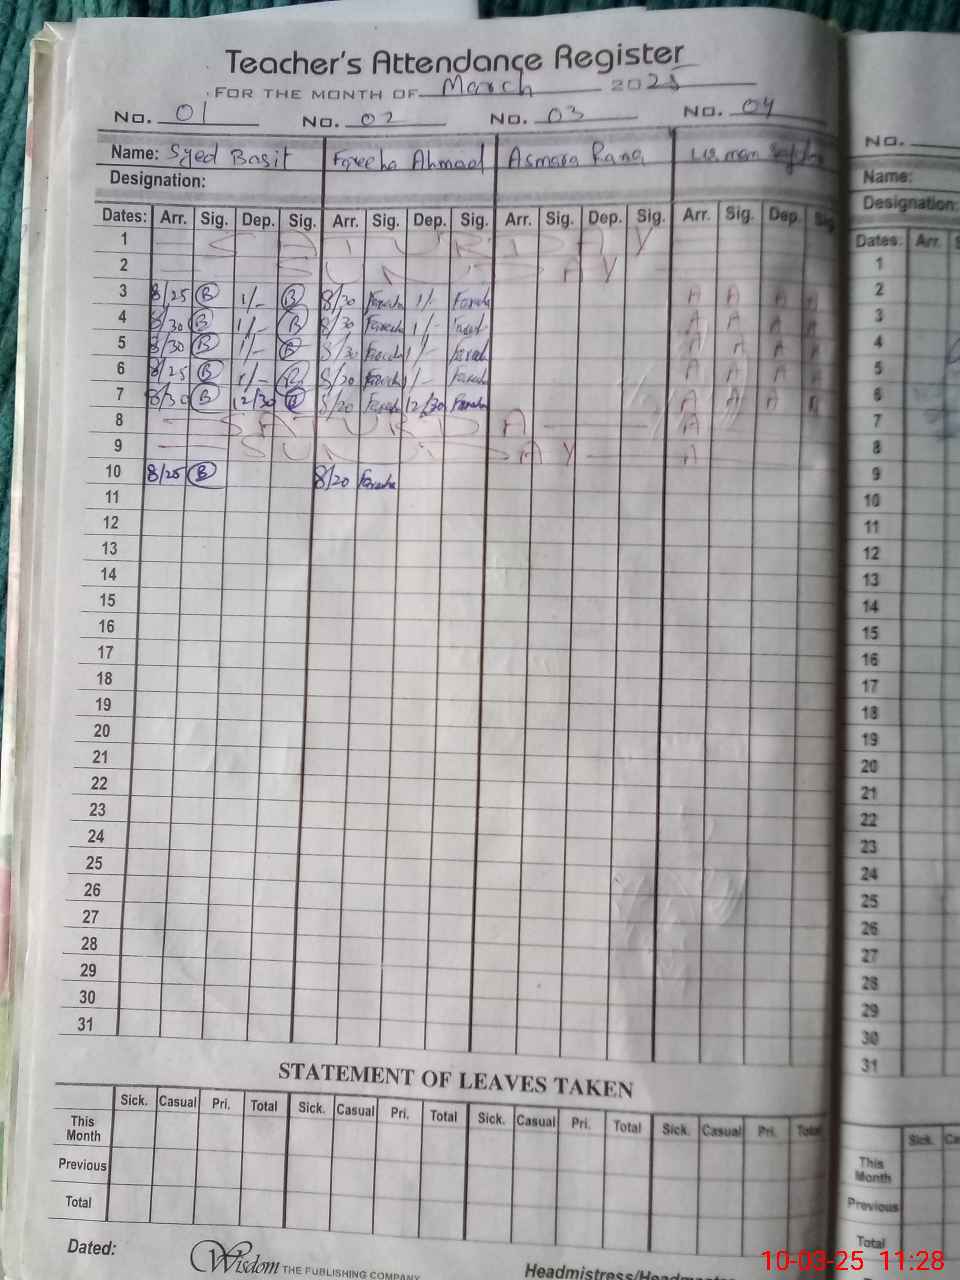 Teacher's Attendance Register
FOR THE MONTH OF March 2025
No. 01 No. 02 No. 03 No. 04
Name: Syed Basit Fareeha Ahmad Asmara Rana Usman
Designation:
Dates: Arr. Sig. Dep. Sig. Arr. Sig. Dep. Sig. Arr. Sig. Dep. Sig. Arr. Sig. Dep. Sig.
1 SATURDAY
2 SUNDAY
3 8/25 B 1/- B 8/30 Fareeha 1/- Fareeha A A A A
4 8/30 B 1/- B 8/30 Fareeha 1/- A A A A
5 8/30 B 1/- B 8/30 Fareeha 1/- Fareeha A A A A
6 8/25 B 1/- B 8/20 Fareeha 1/- Fareeha A A A A
7 8/30 B 12/30 B 8/20 Fareeha 12/30 Fareeha A A A A
8 SATURDA A
9 SUNDAY A
10 8/25 B 8/20 Fareeha
11
12
13
14
15
16
17
18
19
20
21
22
23
24
25
26
27
28
29
30
31
STATEMENT OF LEAVES TAKEN
Sick. Casual Pri. Total Sick. Casual Pri. Total Sick. Casual Pri. Total Sick. Casual Pri. Total
This Month
Previous
Total
Dated:
Wisdom THE PUBLISHING COMPANY
Headmistress/Headmaster
No.
Name:
Designation:
Dates: Arr.
1
2
3
4
5
6
7
8
9
10
11
12
13
14
15
16
17
18
19
20
21
22
23
24
25
26
27
28
29
30
31
Sick.
This Month
Previous
Total
10-03-25 11:28